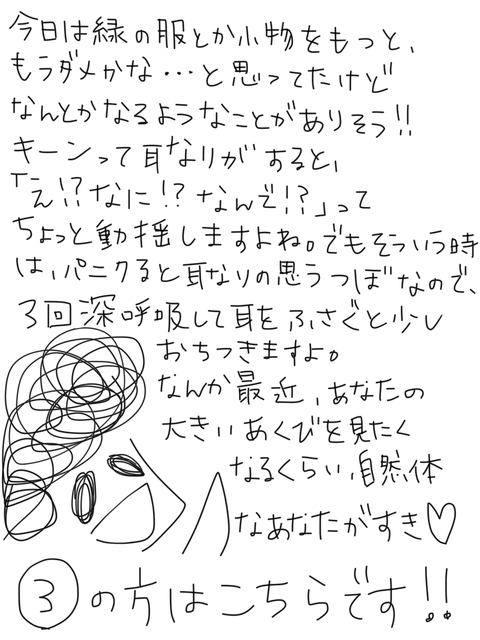 今日は緑の服とか小物をもつと、
もうダメかな…と思ってたけど
なんとかなるようなことがありそう!!
キーンって耳なりがすると、
「え!?なに!?なんで!?」って
ちょっと動揺しますよね。でもそういう時
は、パニクると耳なりの思うつぼなので、
3回深呼吸して耳をふさぐと少し
おちつきますよ。
なんか最近、あなたの
大きいあくびを見たく
なるくらい、自然体
なあなたがすき♡
③の方はこちらです!!